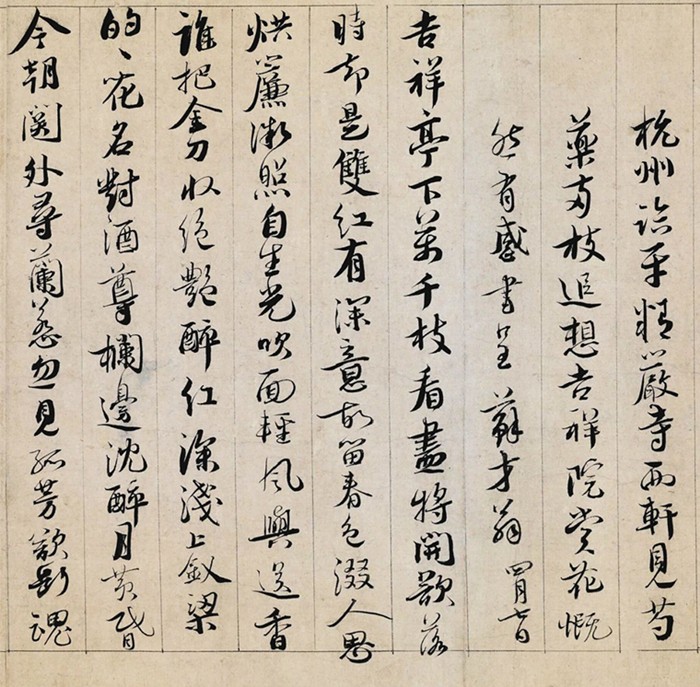 杭州臨平精嚴寺西軒見芍
藥兩枝追想吉祥院賞花慨
然有感書呈蘇才翁 四月七日
吉祥亭下萬千枝看盡將開欲落
時却是雙紅有深意故留春色綴人思
烘簾微照自生光吹面輕風與送香
誰把金刀收絕艷醉紅深淺上釵梁
的的花名對酒尊欄邊沈醉月黃昏
今朝關外尋蘭蕙忽見孤芳欲斷魂